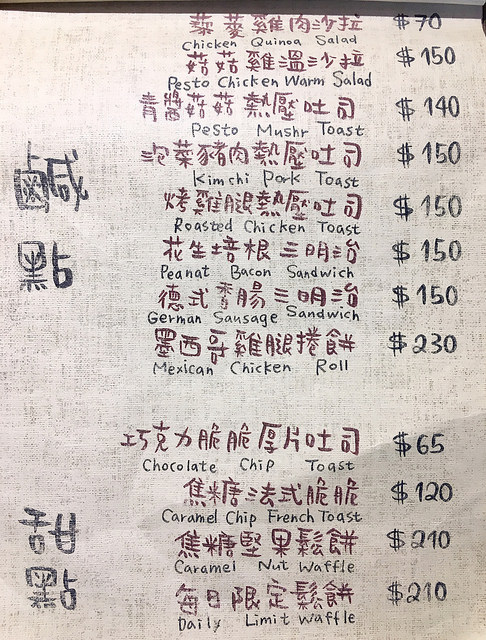 藜麥雞肉沙拉 $70
Chicken Quinoa Salad
菇菇雞溫沙拉 $150
Pesto Chicken Warm Salad
青醬菇菇熱壓吐司 $140
Pesto Mushr Toast
泡菜豬肉熱壓吐司 $150
Kimchi Pork Toast
鹹點
烤雞腿熱壓吐司 $150
Roasted Chicken Toast
花生培根三明治 $150
Peanat Bacon Sandwich
德式香腸三明治 $150
German Sausage Sandwich
墨西哥雞腿捲餅 $230
Mexican Chicken Roll
巧克力脆脆厚片吐司 $65
Chocolate Chip Toast
焦糖法式脆脆 $120
Caramel Chip French Toast
甜點
焦糖堅果鬆餅 $210
Caramel Nut Waffle
每日限定鬆餅 $210
Daily Limit Waffle